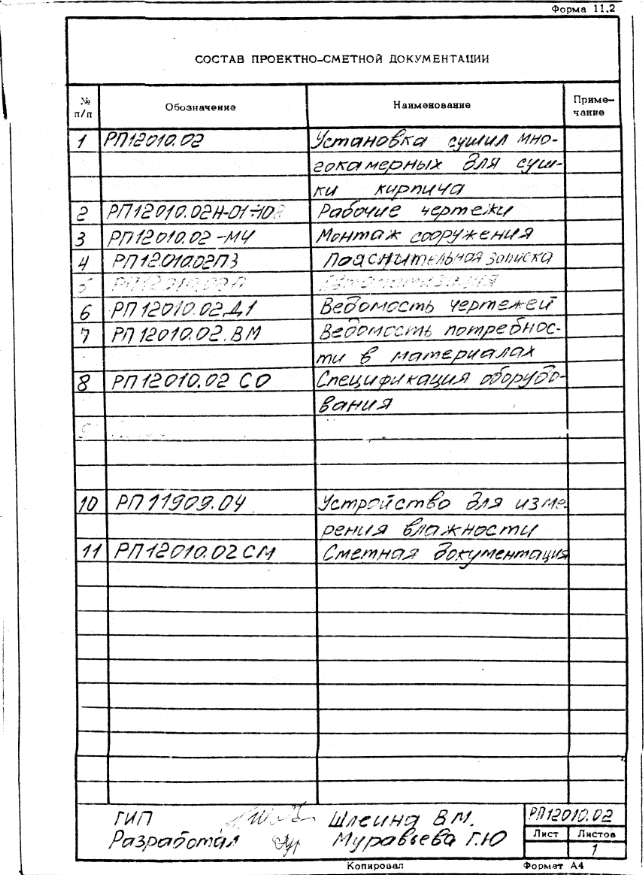 Форма 11.2
СОСТАВ ПРОЕКТНО-СМЕТНОЙ ДОКУМЕНТАЦИИ
№ п/п Обозначение Наименование Приме-
чание
1 РП12010.02 Установка сушил мно-
гокамерных для суш-
ки кирпича
2 РП12010.02Н-01÷10 Рабочие чертежи
3 РП12010.02-МЧ Монтаж сооружения
4 РП12010.02ПЗ Пояснительная записка
5
6 РП12010.02.Д1 Ведомость чертежей
7 РП12010.02.ВМ Ведомость потребнос-
ти в материалах
8 РП12010.02 СО Спецификация оборудо-
вания
10 РП11909.04 Устройство для изме-
рения влажности
11 РП12010.02СМ Сметная документация
ГИП Шлеина В М.
Разработал Муравьева Г.Ю
РП12010.02
Лист Листов
1
Копировал Формат А4